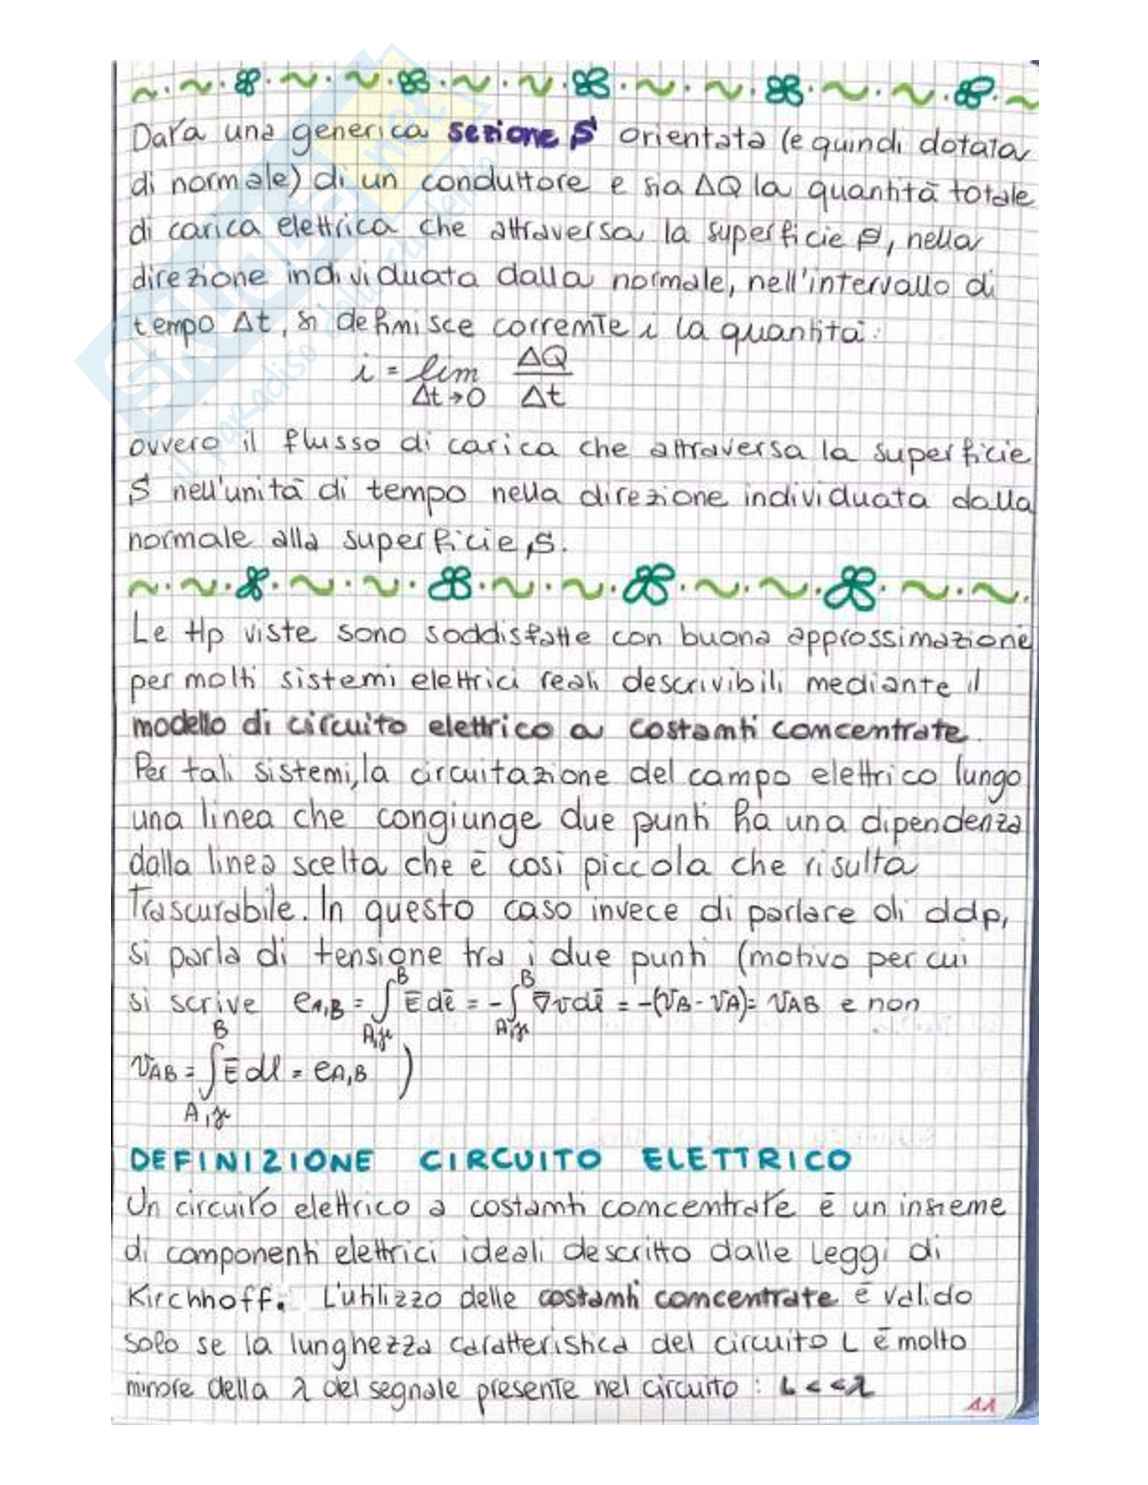 Data una generica sezione S orientata (e quindi dotata
di normale) di un conduttore e sia ΔQ la quantità totale
di carica elettrica che attraversa la superficie S, nella
direzione individuata dalla normale, nell'intervallo di
tempo Δt, si definisce corrente i la quantità:
i = lim ΔQ/Δt
Δt→0
ovvero il flusso di carica che attraversa la superficie
S nell'unità di tempo nella direzione individuata dalla
normale alla superficie S.
Le Hp viste sono soddisfatte con buona approssimazione
per molti sistemi elettrici reali descrivibili mediante il
modello di circuito elettrico a costanti concentrate.
Per tali sistemi, la circuitazione del campo elettrico lungo
una linea che congiunge due punti ha una dipendenza
dalla linea scelta che è così piccola che risulta
trascurabile. In questo caso invece di parlare di ddp,
si parla di tensione tra i due punti (motivo per cui
si scrive e_A,B = ∫_A,γ^B E̅ dl̅ = -∫_A,γ^B ∇̅v dl̅ = -(v_B - v_A) = v_AB e non
v_AB = ∫_A,γ^B E̅ dl = e_A,B )
DEFINIZIONE CIRCUITO ELETTRICO
Un circuito elettrico a costanti concentrate è un insieme
di componenti elettrici ideali descritto dalle Leggi di
Kirchhoff. L'utilizzo delle costanti concentrate è valido
solo se la lunghezza caratteristica del circuito L è molto
minore della λ del segnale presente nel circuito: L << λ
11